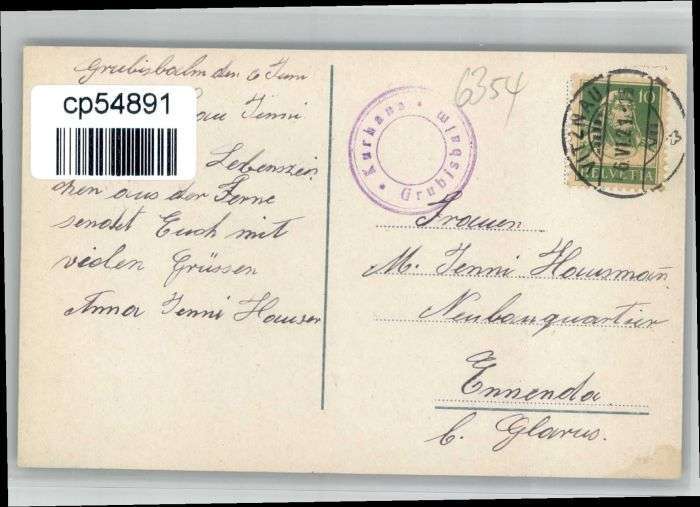 Grubisbalm den 6 Juni
cp54891
Jenni
Lebenszei-
chen aus der Ferne
sendet Euch mit
vielen Grüssen
Anna Jenni Hauser
Kurhaus * Grubisbalm *
6354
VITZNAU
VI.21
VIII
10
HELVETIA
Frauen
M. Jenni Hausman̄
Neubauquartier
Ennenda
b. Glarus.